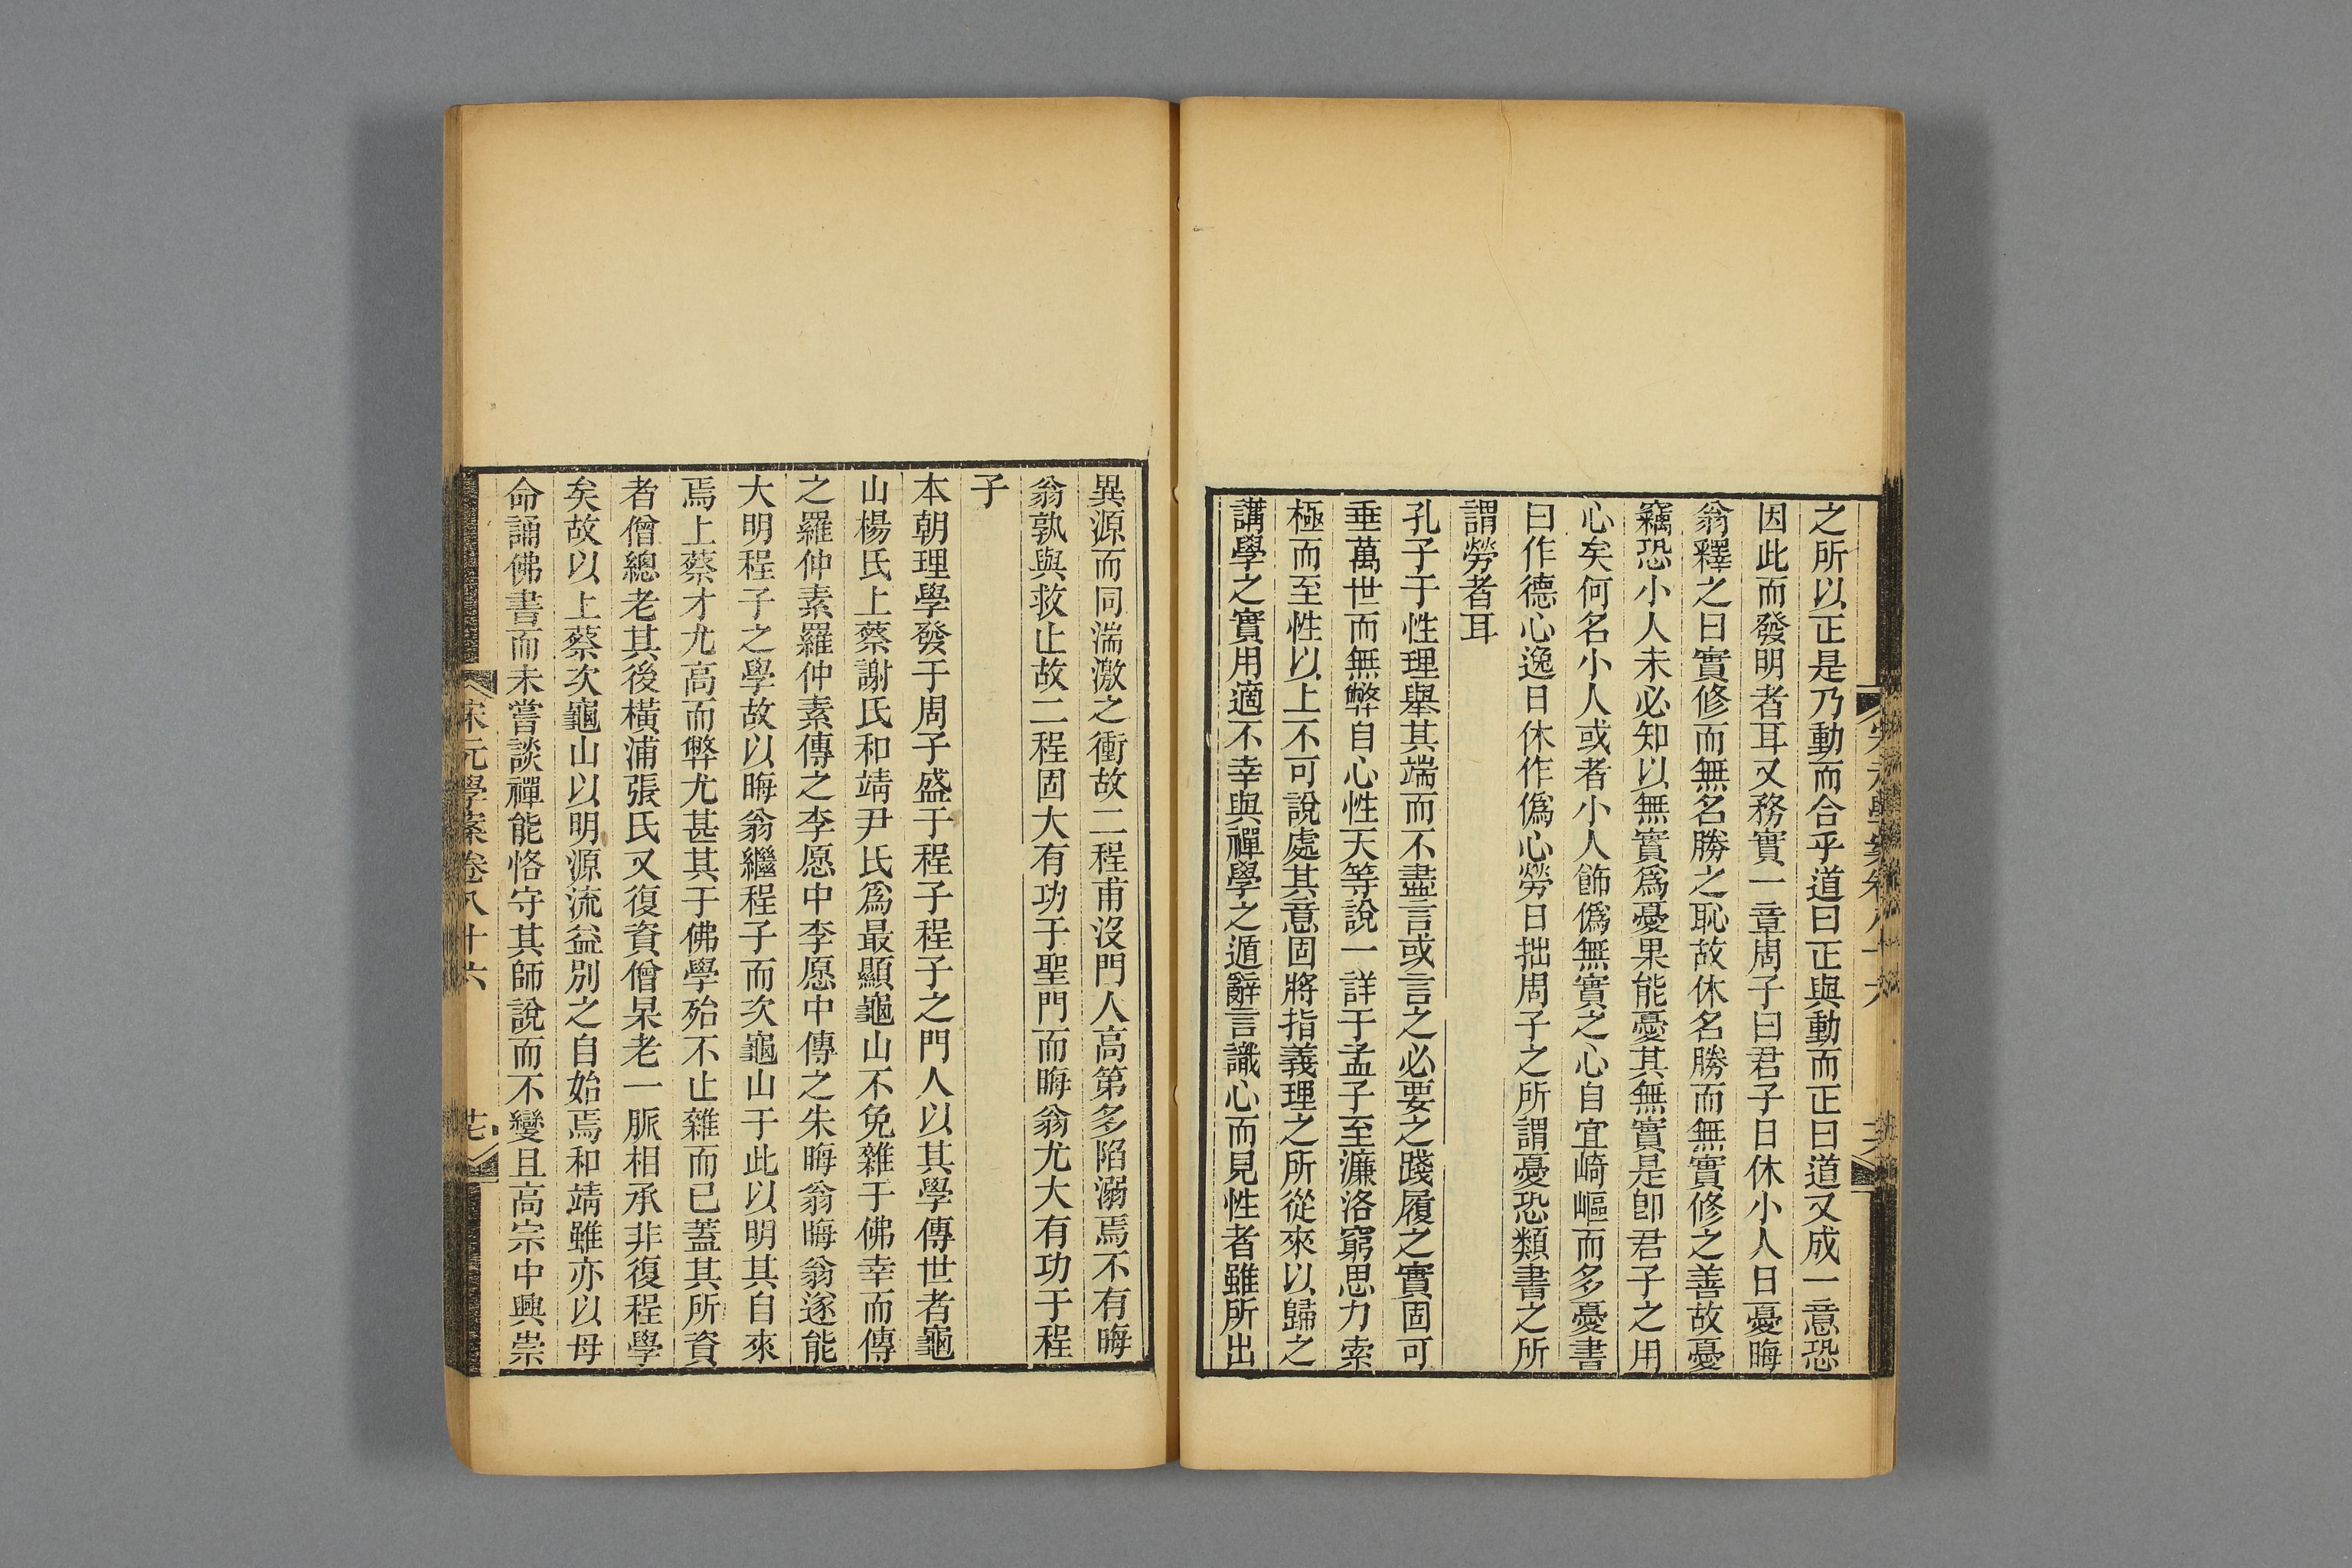 之所以正是乃動而合乎道曰正與動而正曰道又成一意恐
因此而發明者耳又務實一章周子曰君子日休小人日憂晦
翁釋之曰實修而無名勝之恥故休名勝而無實修之善故憂
竊恐小人未必知以無實爲憂果能憂其無實是卽君子之用
心矣何名小人或者小人飾僞無實之心自宜崎嶇而多憂書
曰作德心逸日休作僞心勞日拙周子之所謂憂恐類書之所
謂勞者耳
孔子于性理舉其端而不盡言或言之必要之踐履之實固可
垂萬世而無弊自心性天等說一詳于孟子至濂洛窮思力索
極而至性以上不可說處其意固將指義理之所從來以歸之
講學之實用適不幸與禪學之遁辭言識心而見性者雖所出
異源而同湍激之衝故二程甫沒門人高第多陷溺焉不有晦
翁孰與救止故二程固大有功于聖門而晦翁尤大有功于程
子
本朝理學發于周子盛于程子程子之門人以其學傳世者龜
山楊氏上蔡謝氏和靖尹氏爲最顯龜山不免雜于佛幸而傳
之羅仲素羅仲素傳之李愿中李愿中傳之朱晦翁晦翁遂能
大明程子之學故以晦翁繼程子而次龜山于此以明其自來
焉上蔡才尤高而弊尤甚其于佛學殆不止雜而已蓋其所資
者僧總老其後橫浦張氏又復資僧杲老一脈相承非復程學
矣故以上蔡次龜山以明源流益別之自始焉和靖雖亦以母
命誦佛書而未嘗談禪能恪守其師說而不變且高宗中興崇
宋元學案卷八十六